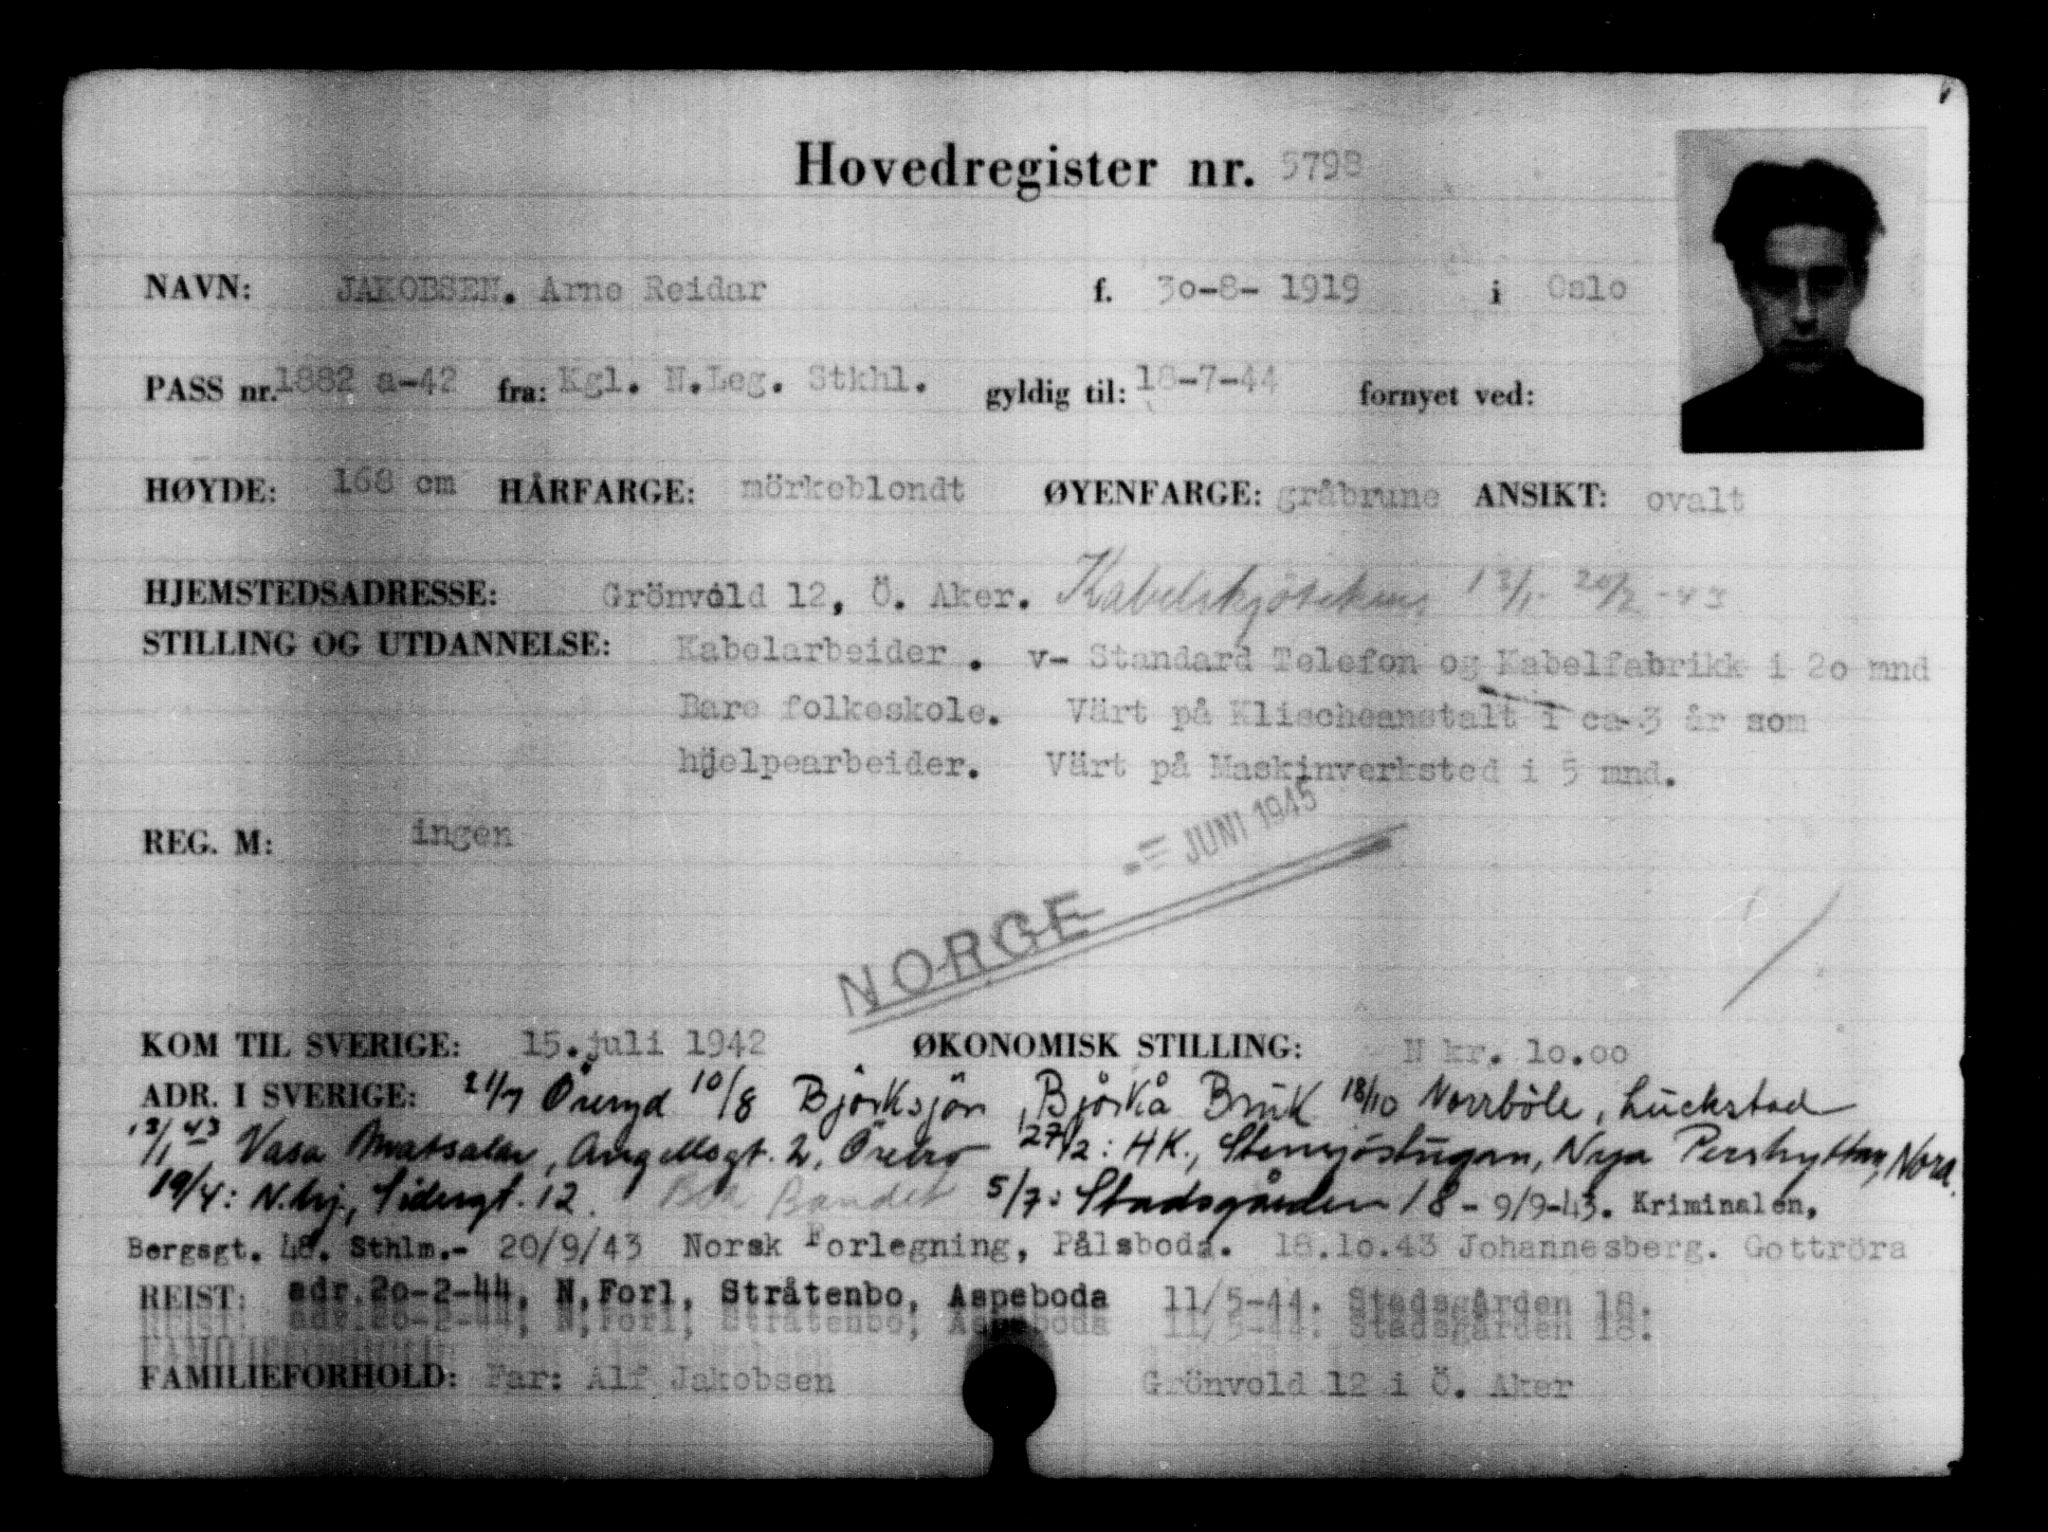 Hovedregister nr. 5798
NAVN: JAKOBSEN. Arne Reidar f. 30-8- 1919 i Oslo
PASS nr. 1882 a-42 fra: Kgl. N.Leg. Stkhl. gyldig til: 18-7-44 fornyet ved:
HØYDE: 168 cm HÅRFARGE: mörkeblondt ØYENFARGE: gråbrune ANSIKT: ovalt
HJEMSTEDSADRESSE: Grönvold 12, Ö. Aker. 13/1- 20/2 -43
STILLING OG UTDANNELSE: Kabelarbeider . v- Standard Telefon og Kabelfabrikk i 2o mnd
Bare folkeskole. Värt på Klischeanstalt i ca 3 år som
hjelpearbeider. Värt på Maskinverksted i 5 mnd.
REG. M: ingen
JUNI 1945
NORGE
KOM TIL SVERIGE: 15.juli 1942 ØKONOMISK STILLING: N kr. 1o.oo
ADR. I SVERIGE: 21/7 Öreryd 10/8 Björksjön, Björkå Bruk 18/10 Norrböle, Luckstad
13/1 43 Vasa Matsalar, Angellsgt. 2, Örebro 27/2: HK., Stensjöstugan, Nya Pershyttan, Nora.
19/4: N.hj., Sidengt. 12. Bandet 5/7: Stadsgården 18 - 9/9-43. Kriminalen,
Bergsgt. 48. Sthlm.- 20/9/43 Norsk Forlegning, Pålsboda. 18.1o.43 Johannesberg. Gottröra
REIST: adr.2o-2-44, N,Forl, Stråtenbo, Aspeboda 11/5-44. Stadsgården 18.
FAMILIEFORHOLD: Far: Alf Jakobsen Grönvold 12 i Ö. Aker